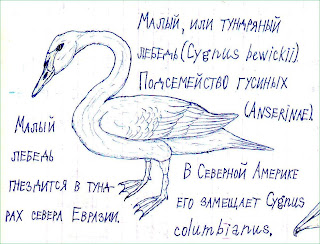 Малый, или тундряный
лебедь (Cygnus bewickii).
Подсемейство гусиных
(Anserinae).
Малый
лебедь
гнездится в тунд-
рах севера Евразии.
В Северной Америке
его замещает Cygnus
columbianus.